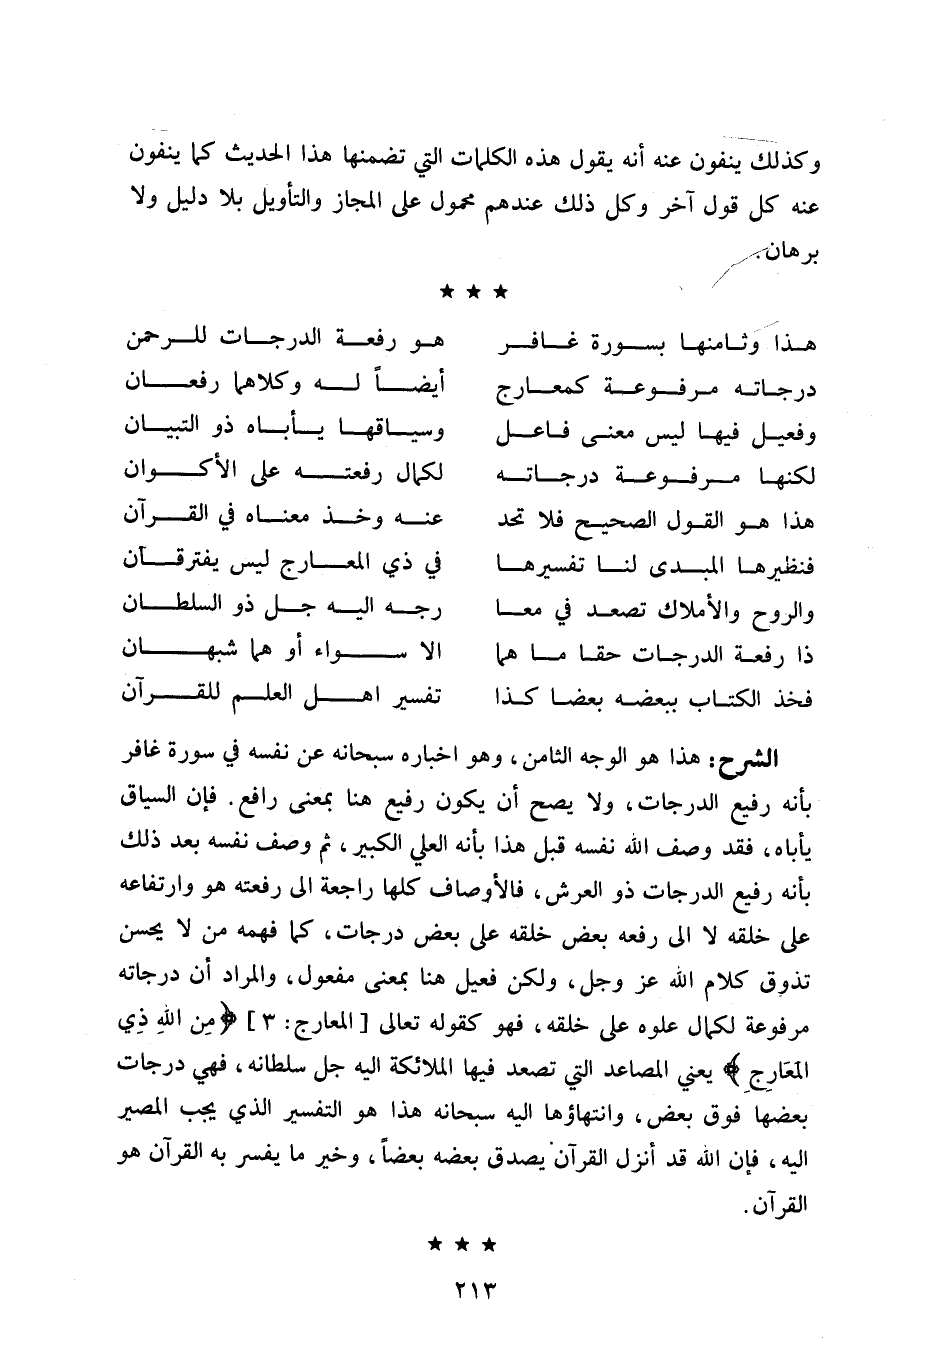 وكذلك ينفون عنه أنه يقول هذه الكلمات التي تضمنها هذا الحديث كما ينفون
عنه كل قول آخر وكل ذلك عندهم محمول على المجاز والتأويل بلا دليل ولا
برهان.
★ ★ ★
هذا وثامنها بسورة غافر هو رفعة الدرجات للرحمن
درجاته مرفوعة كمعارج أيضاً له وكلاهما رفعان
وفعيل فيها ليس معنى فاعل وسياقها يأباه ذو التبيان
لكنها مرفوعة درجاته لكمال رفعته على الأكوان
هذا هو القول الصحيح فلا تحد عنه وخذ معناه في القرآن
فنظيرها المبدى لنا تفسيرها في ذي المعارج ليس يفترقان
والروح والأملاك تصعد في معا رجه اليه جل ذو السلطان
ذا رفعة الدرجات حقا ما هما الا سواء أو هما شبهان
فخذ الكتاب ببعضه بعضا كذا تفسير اهل العلم للقرآن
الشرح: هذا هو الوجه الثامن، وهو اخباره سبحانه عن نفسه في سورة غافر
بأنه رفيع الدرجات، ولا يصح أن يكون رفيع هنا بمعنى رافع. فإن السياق
يأباه، فقد وصف الله نفسه قبل هذا بأنه العلي الكبير، ثم وصف نفسه بعد ذلك
بأنه رفيع الدرجات ذو العرش، فالأوصاف كلها راجعة الى رفعته هو وارتفاعه
على خلقه لا الى رفعه بعض خلقه على بعض درجات، كما فهمه من لا يحسن
تذوق كلام الله عز وجل، ولكن فعيل هنا بمعنى مفعول، والمراد أن درجاته
مرفوعة لكمال علوه على خلقه، فهو كقوله تعالى [المعارج: ٣] ﴿مِن اللهِ ذِي
المَعَارِجِ﴾ يعني المصاعد التي تصعد فيها الملائكة اليه جل سلطانه، فهي درجات
بعضها فوق بعض، وانتهاؤها اليه سبحانه هذا هو التفسير الذي يجب المصير
اليه، فإن الله قد أنزل القرآن يصدق بعضه بعضاً، وخير ما يفسر به القرآن هو
القرآن.
★ ★ ★
٢١٣